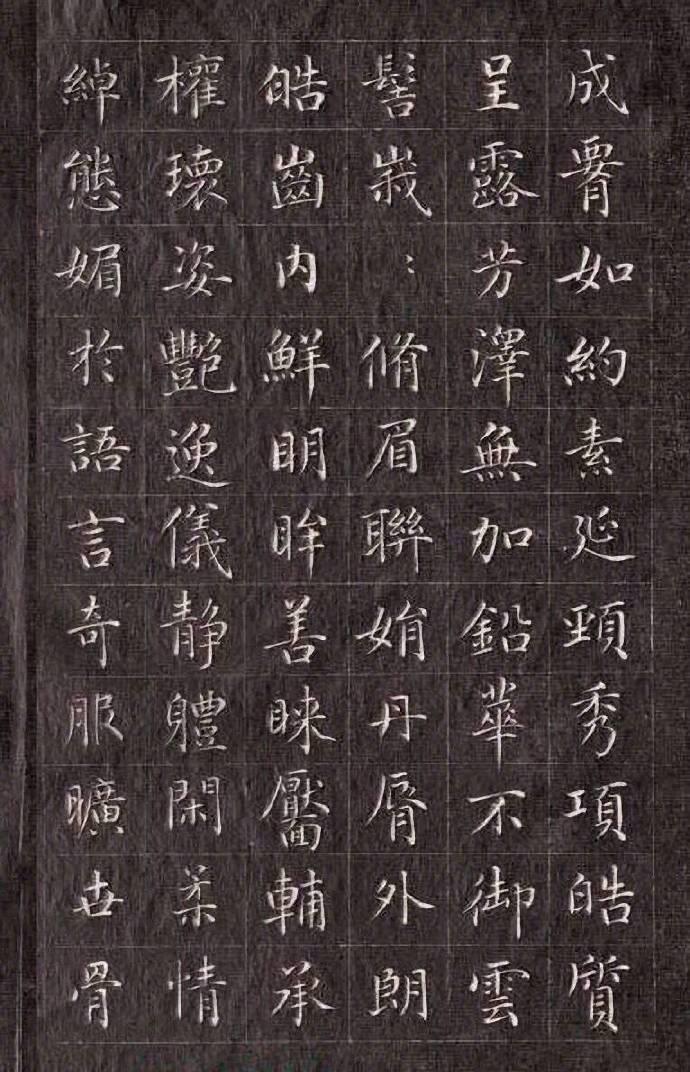 成霄如約素延頸秀項皓質
呈露芳澤無加鉛華不御雲
髻峩：脩眉聯娟丹脣外朗
皓齒內鮮明眸善睞靨輔承
權瓌姿艷逸儀静軆閑柔情
綽態媚於語言奇服曠世骨